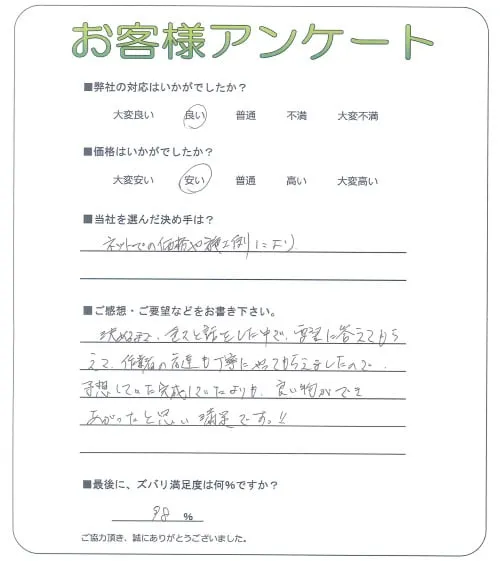 お客様アンケート
■弊社の対応はいかがでしたか？
大変良い 良い 普通 不満 大変不満
■価格はいかがでしたか？
大変安い 安い 普通 高い 大変高い
■当社を選んだ決め手は？
ネットでの価格や施工例により
■ご感想・ご要望などをお書き下さい。
決めるまで、色々と話をした中で、要望に答えてもら
えて、作業の方達も丁寧にやってもらえましたので、
予想していた完成していたよりも、良い物ができ
あがったと思い満足です。!!
■最後に、ズバリ満足度は何％ですか？
98 %
ご協力頂き、誠にありがとうございました。